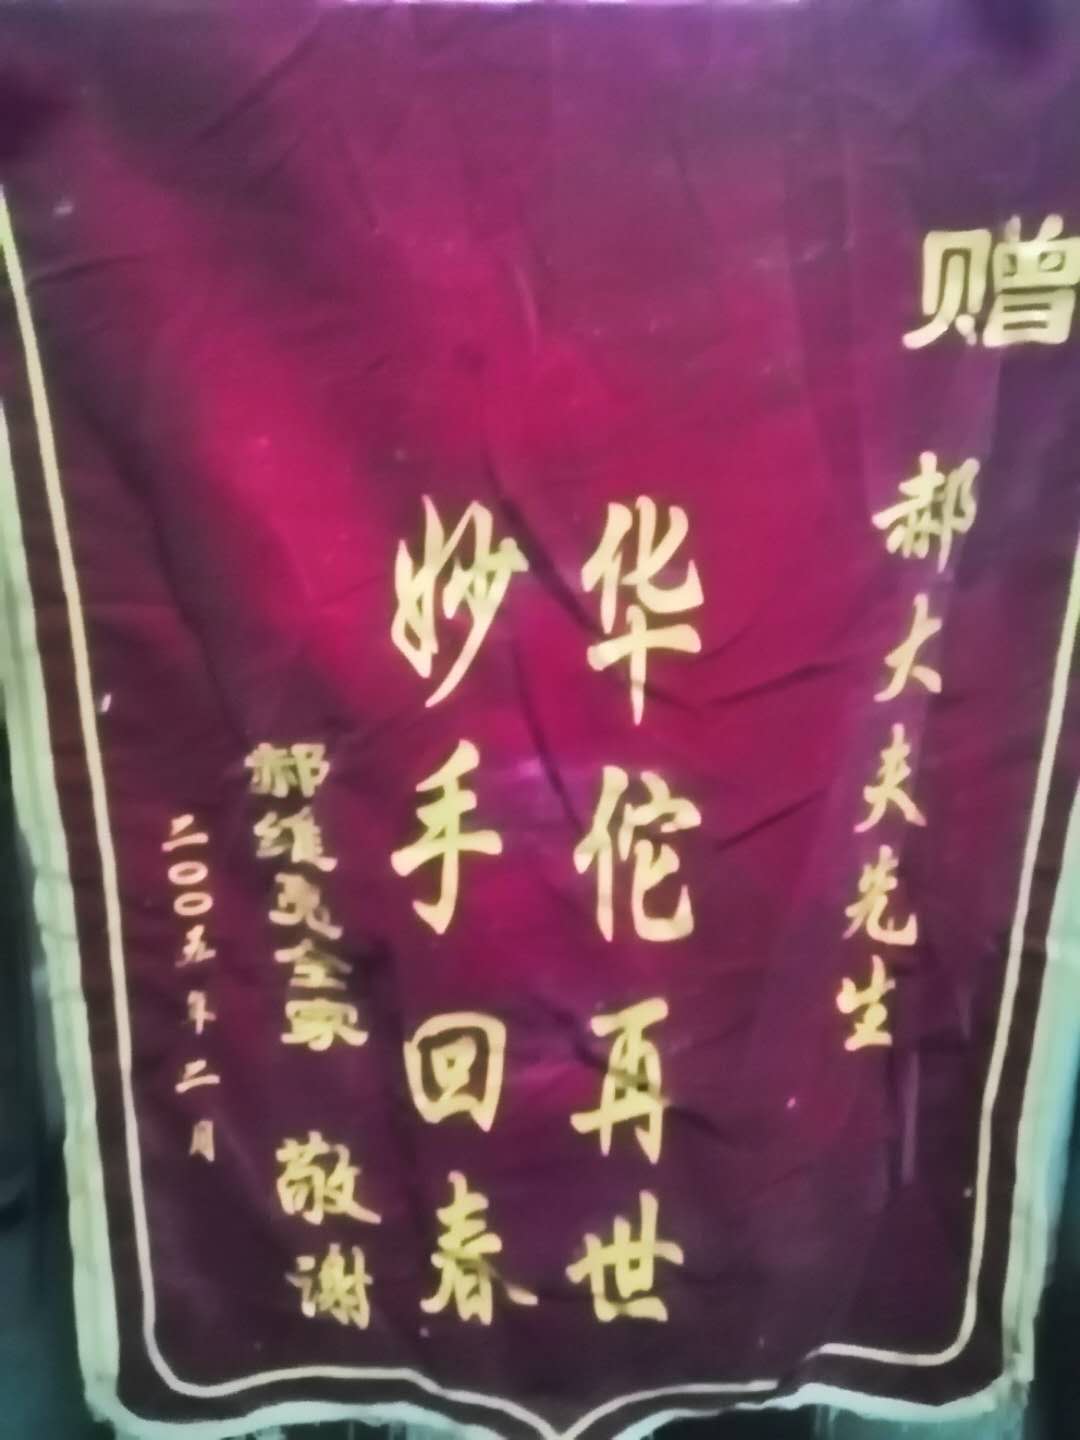 赠
郝大夫先生
华佗再世
妙手回春
郝维勇全家 敬谢
二00五年二月